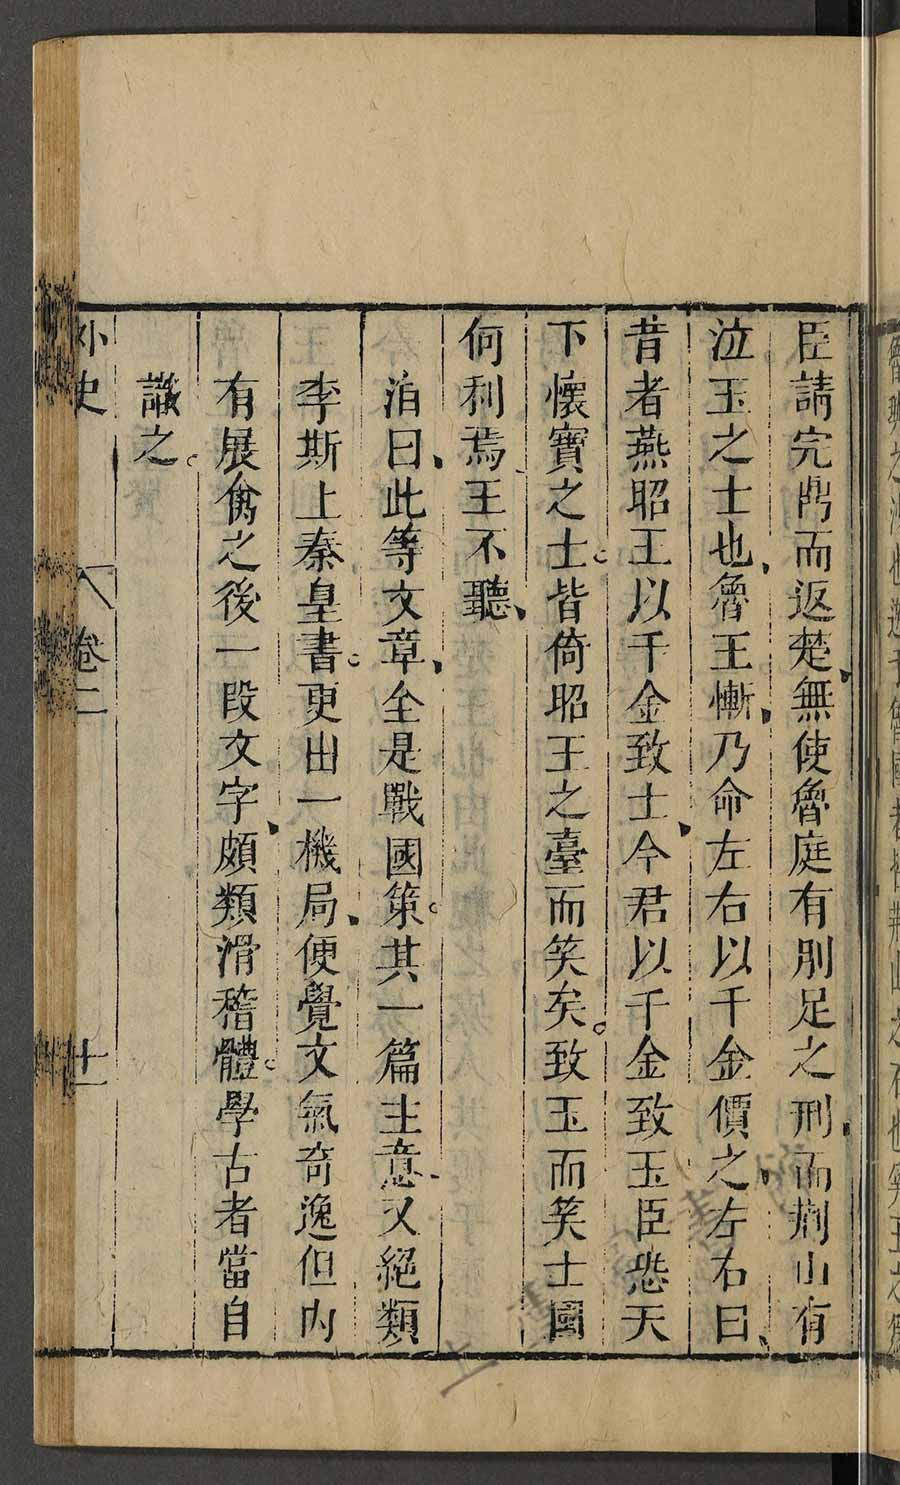 臣請完鼎而返楚無使魯庭有刖足之刑而荆山有
泣玉之士也魯王慚乃命左右以千金價之左右曰
昔者燕昭王以千金致士今君以千金致玉臣恐天
下懷寶之士皆倚昭王之臺而笑矣致玉而笑士國
何利焉王不聽
泊曰此等文章全是戰國策其一篇主意又絕類
李斯上秦皇書更出一機局便覺文氣奇逸但内
有展禽之後一段文字頗類滑稽體學古者當自
識之
外史 卷二 十一